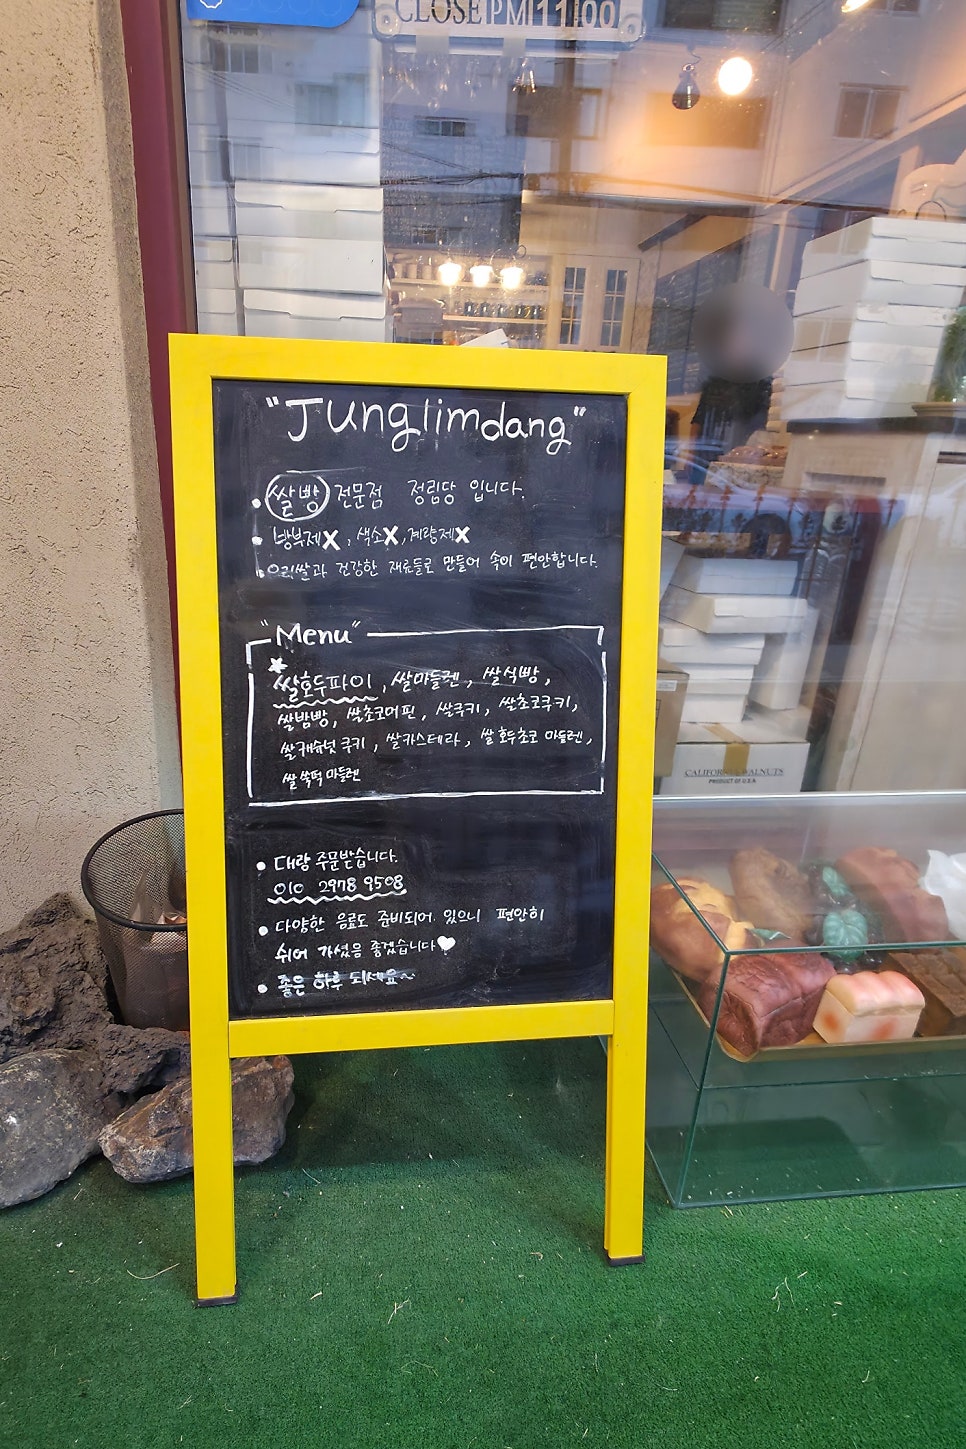 CLOSE PM 11 00
"Junglimdang"
쌀빵 전문점 정림당 입니다.
방부제X, 색소X, 계량제X
우리쌀과 건강한 재료들로 만들어 속이 편안합니다.
"Menu"
쌀호두파이, 쌀마들렌, 쌀식빵,
쌀밤빵, 쌀초코머핀, 쌀쿠키, 쌀초코쿠키,
쌀캐슈넛 쿠키, 쌀카스테라, 쌀 호두초코 마들렌,
쌀 쑥떡 마들렌
대량 주문받습니다.
010 2978 9508
다양한 음료도 준비되어 있으니 편안히
쉬어 가셨음 좋겠습니다♥
좋은 하루 되세요~
CALIFORNIA WALNUTS
PRODUCT OF U.S.A